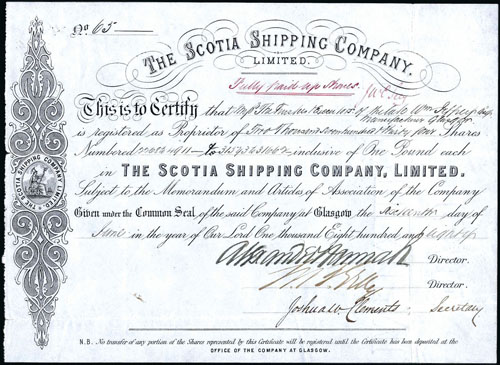 No 65
THE SCOTIA SHIPPING COMPANY.
LIMITED.
Fully paid up Shares.
This is to Certify that
is registered as Proprietor of Two Thousand Shares
Numbered to inclusive of One Pound each
in THE SCOTIA SHIPPING COMPANY, LIMITED.
Subject to the Memorandum and Articles of Association of the Company
Given under the Common Seal, of the said Company at Glasgow the sixteenth day of
June in the year of Our Lord One thousand Eight hundred and eighty
Director.
Director.
Joshua W Clements Secretary
N.B. No transfer of any portion of the Shares represented by this Certificate will be registered until the Certificate has been deposited at the
OFFICE OF THE COMPANY AT GLASGOW.
SCOTIA SHIPPING COMPANY LIMITED